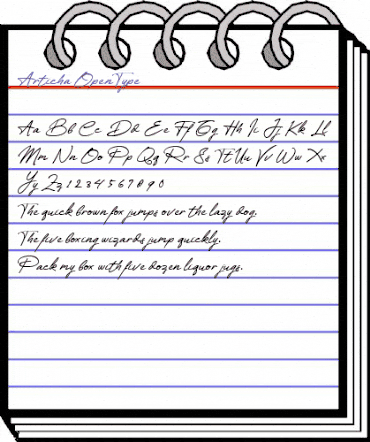 Articha OpenType
Aa Bb Cc Dd Ee Ff Gg Hh Ii Jj Kk Ll
Mm Nn Oo Pp Qq Rr Ss Tt Uu Vv Ww Xx
Yy Zz 1 2 3 4 5 6 7 8 9 0
The quick brown fox jumps over the lazy dog.
The five boxing wizards jump quickly.
Pack my box with five dozen liquor jugs.